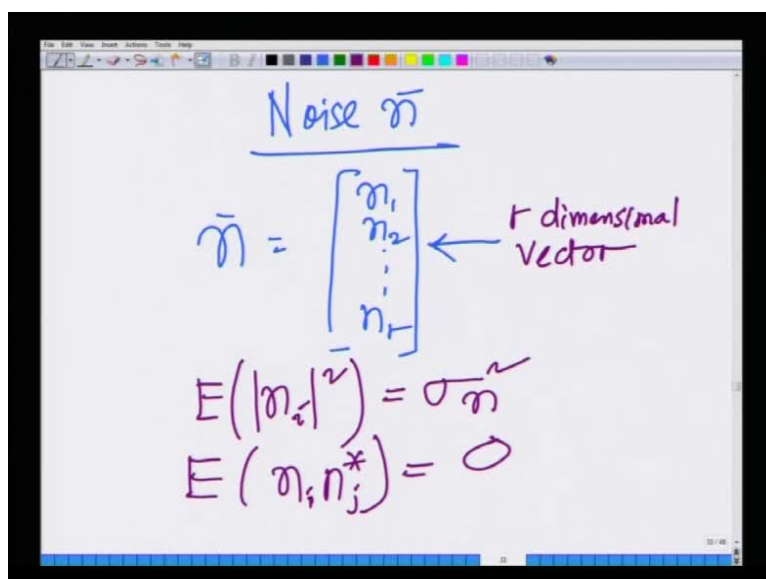 File Edit View Insert Actions Tools Help
Noise n̄
n̄ = [n₁ n₂ ⋮ nᵣ] ← r dimensional vector
E(|nᵢ|²) = σn²
E(nᵢ nⱼ*) = 0
33 / 48